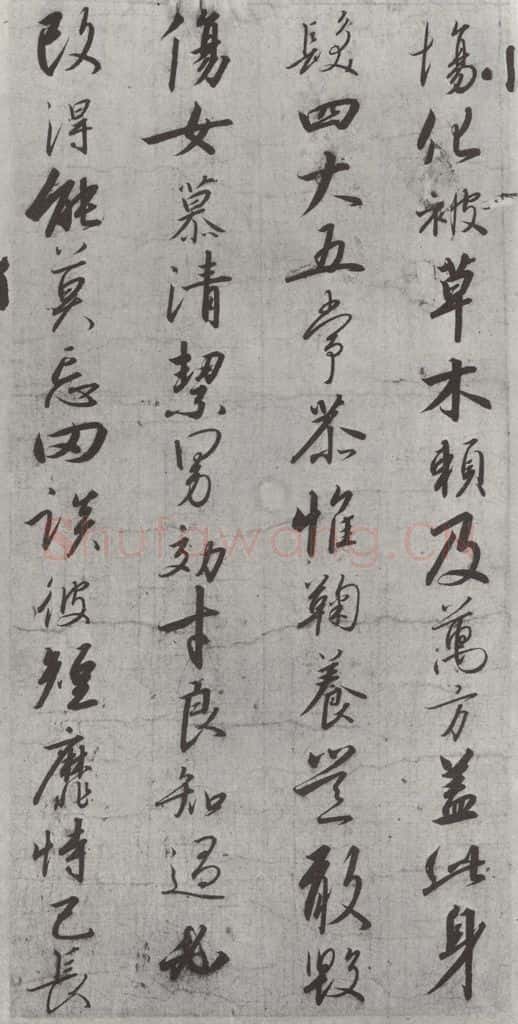 場化被草木賴及萬方蓋此身
髮四大五常恭惟鞠養豈敢毀
傷女慕清潔男効才良知過必
改得能莫忘罔談彼短靡恃己長
Shufawang.cn